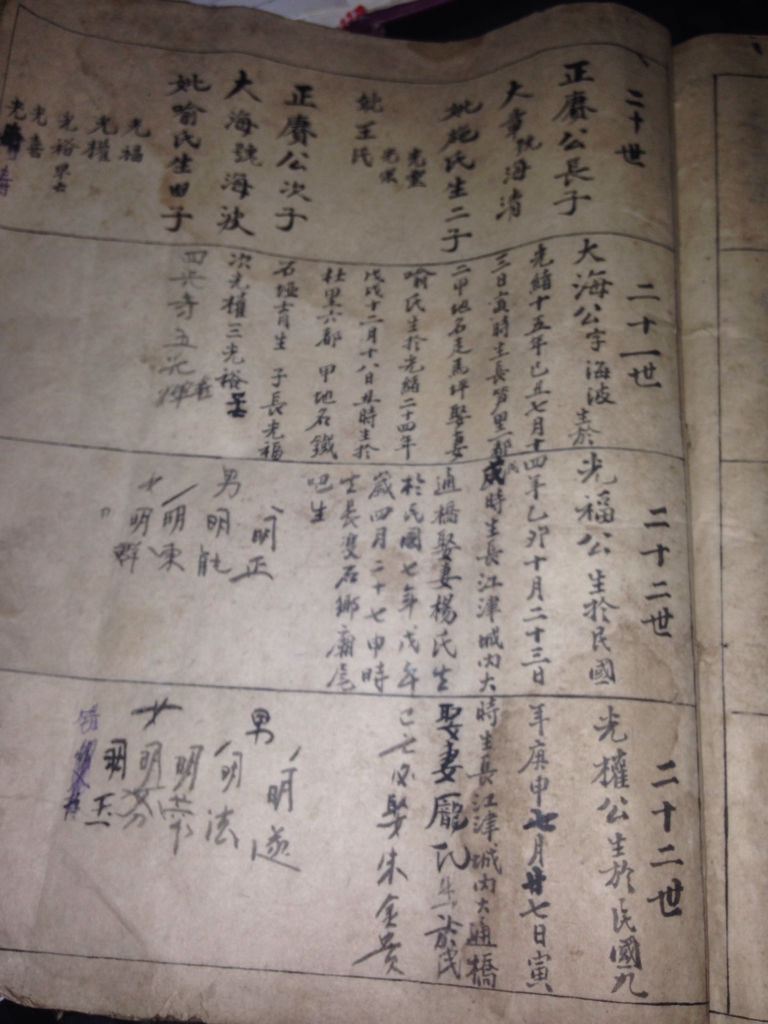 二十世
正賡公長子
大章號海清
妣施氏生二子
光重
妣王氏
正賡公次子
大海號海波
妣喻氏生四子
光福
光權
光裕早亡
光喜
二十一世
大海公字海波生於
光緒十五年己丑七月十四
三日寅時生長筍里一都
二甲地名走馬坪娶妻
喻氏生於光緒二十四年
戊戌十二月十八日丑時生於
杜里六都 甲地名鐵
石埡青生 子長光福
次光權三光裕
二十二世
光福公生於民國
年乙卯十月二十三日
戌時生長江津城內大
通橋娶妻楊氏生
於民國七年戊午
歲四月二十七申時
生長雙石鄉廟尾
吧生
明正
男明能
明東
女明群
二十二世
光權公生於民國九
年庚申七月廿七日寅
時生長江津城內大通橋
娶妻龐氏生於民
娶朱金貴
明遂
男明法
明榮
女明芬
明玉